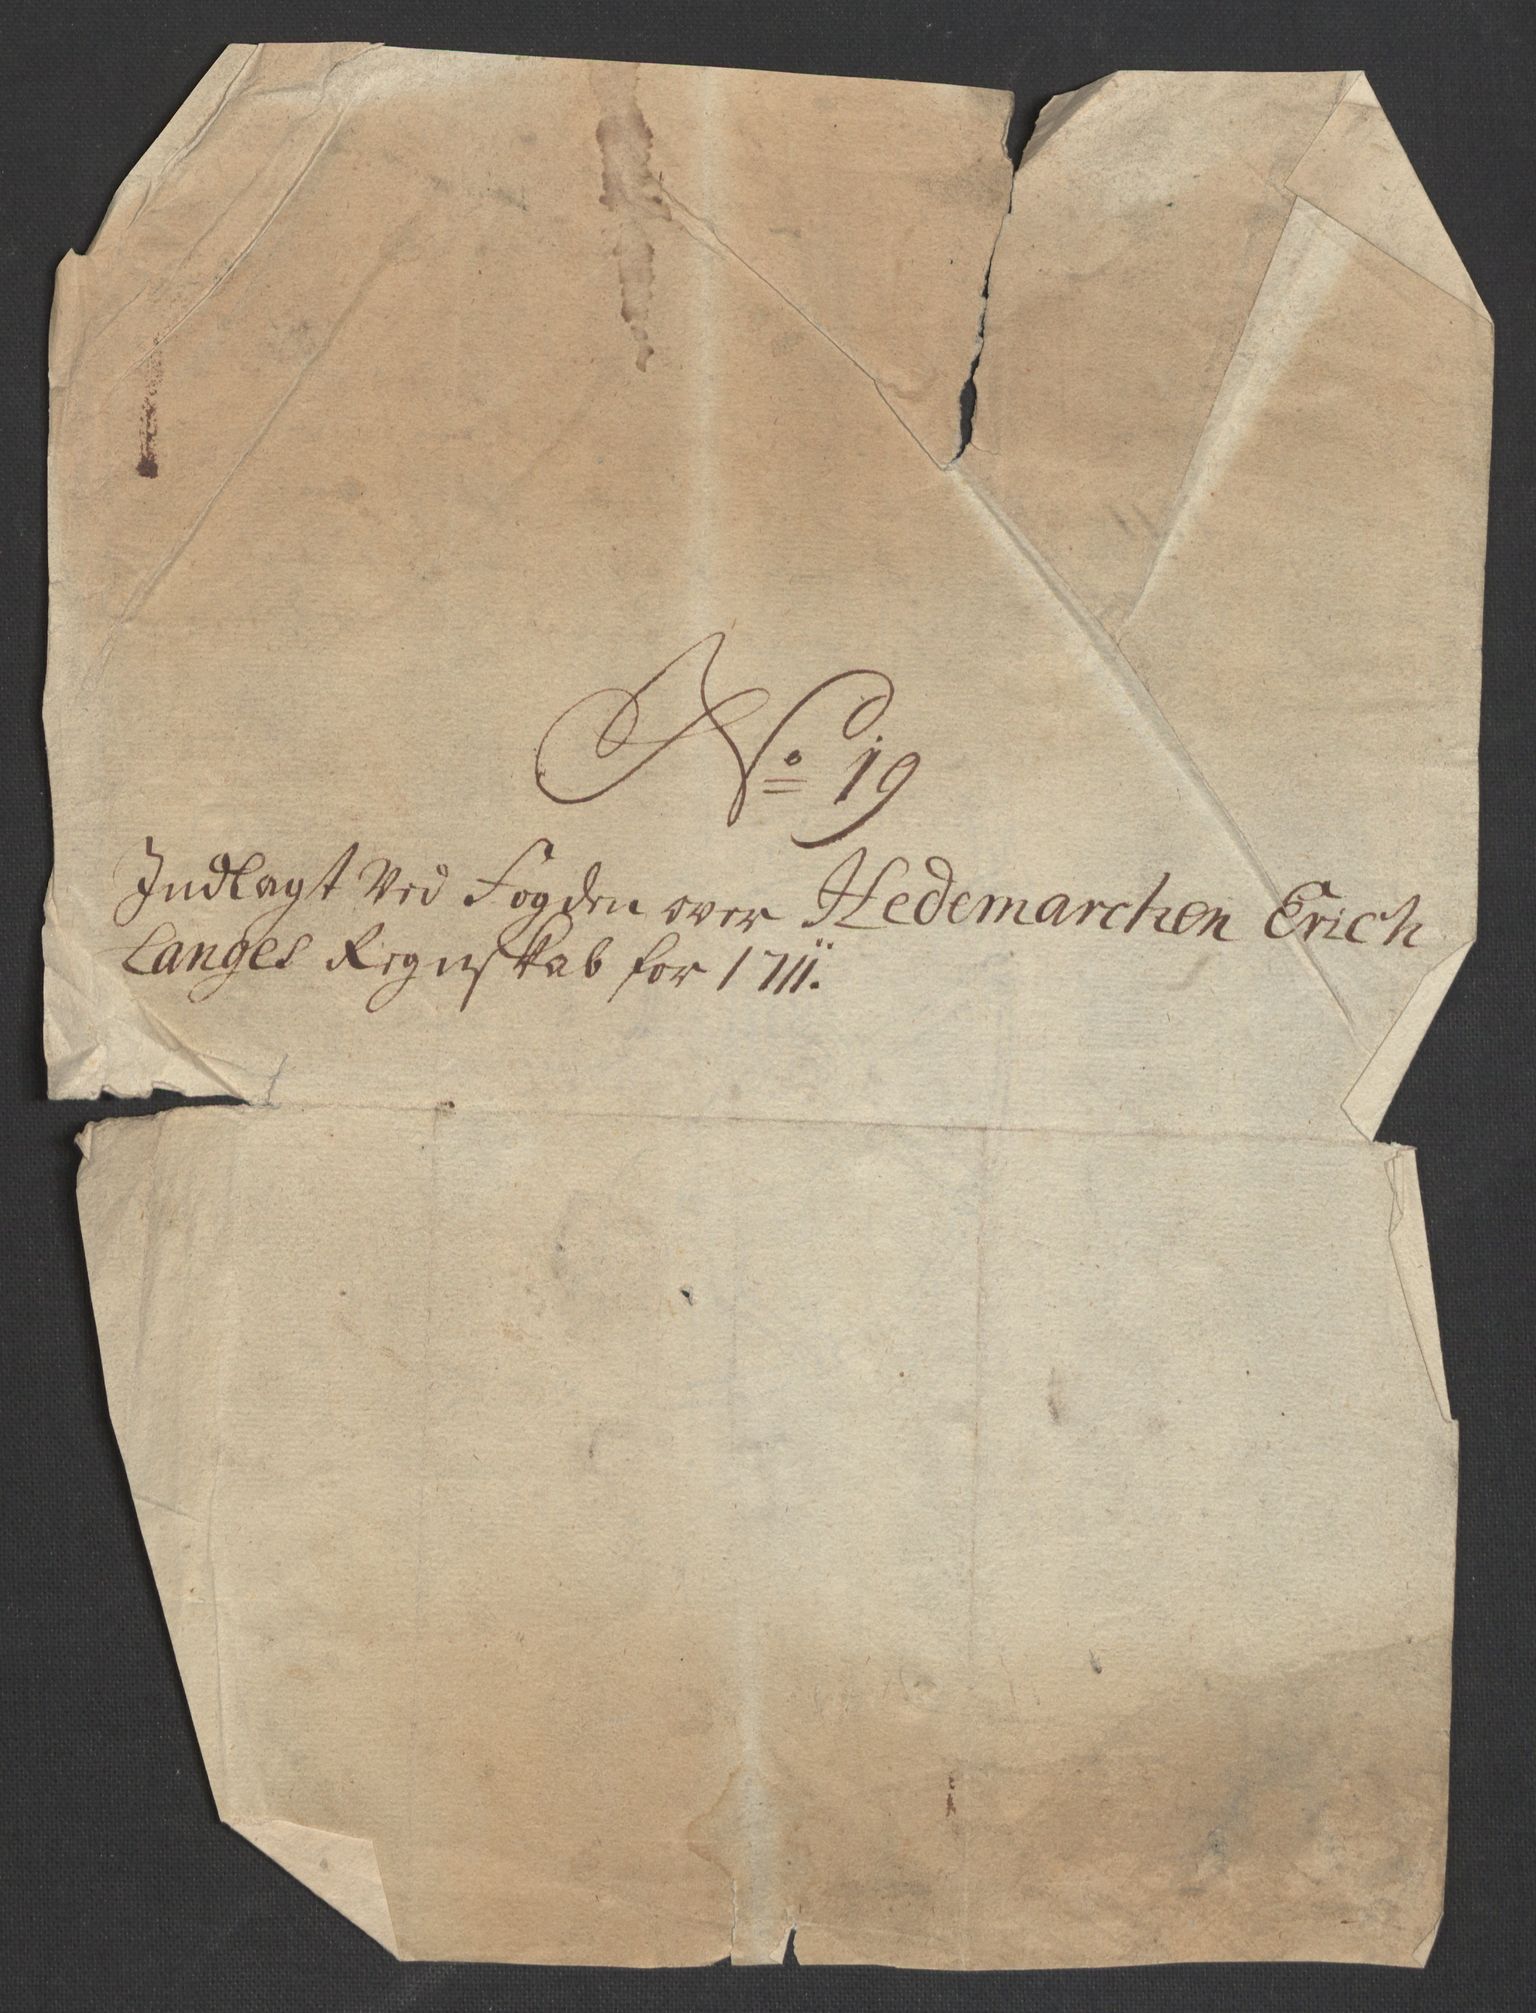 No 19
Indlagt Ved Fogden over Hedemarchen Erich
Langes Regnskab for 1711.